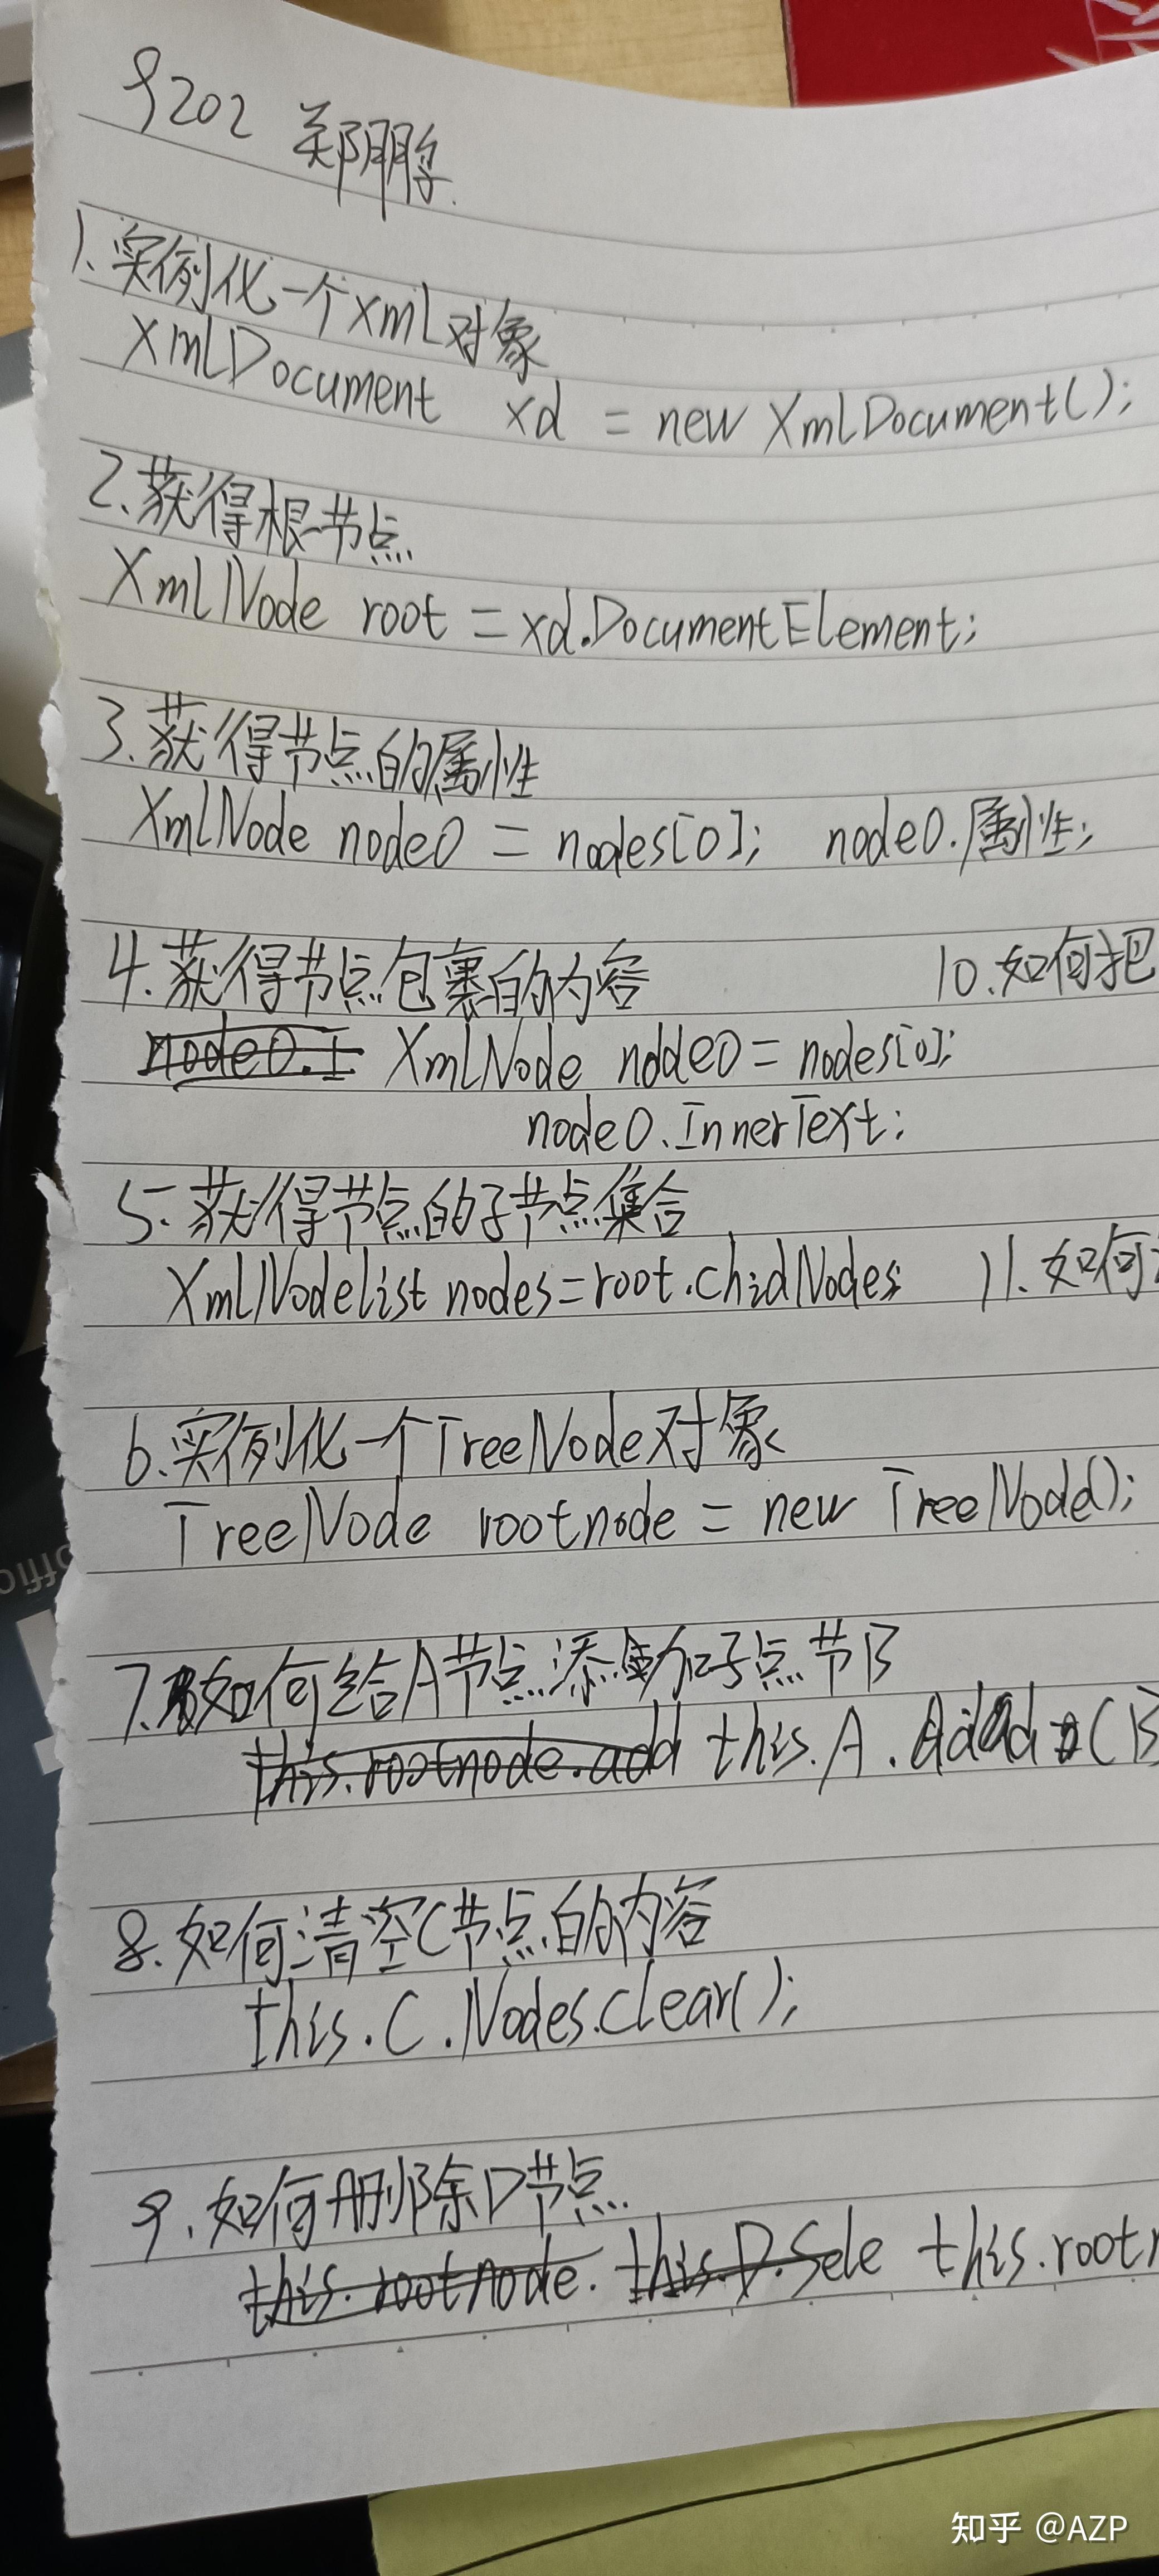 9202 郑鹏
1.实例化一个xml对象
XmlDocument xd = new XmlDocument();
2.获得根节点
XmlNode root = xd.DocumentElement;
3.获得节点的属性
XmlNode node0 = nodes[0]; node0.属性;
4.获得节点包裹的内容
10.如何把
node0.I XmlNode node0 = nodes[0];
node0.InnerText;
5.获得节点的子节点集合
XmlNodelist nodes=root.chidNodes
11.如何
6.实例化一个TreeNode对象
TreeNode rootnode = new TreeNode();
7.如何给A节点添加子点节B
this.rootnode.add this.A.Add(B
8.如何清空C节点的内容
this.C.Nodes.clear();
9.如何删除D节点
this.rootnode. this.D.Sele this.rootn
知乎 @AZP